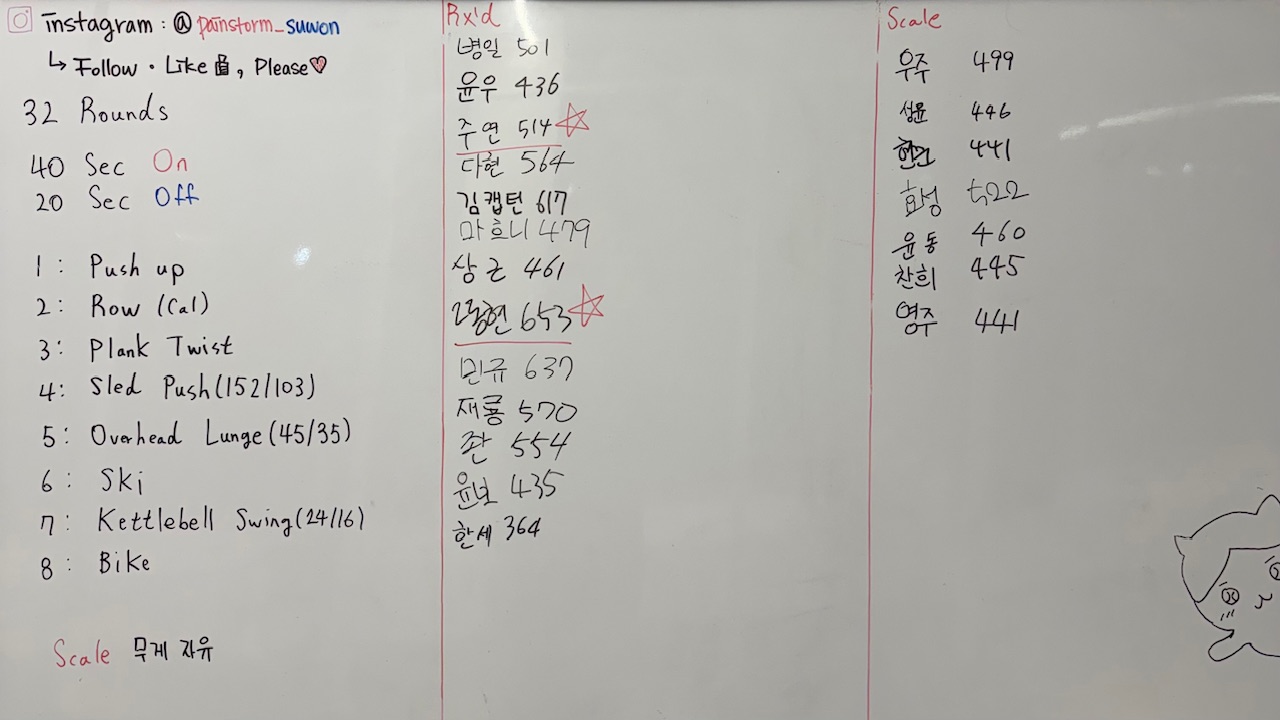 instagram : @ painstorm_suwon
↳ Follow · Like , Please♡
32 Rounds
40 Sec On
20 Sec Off
1 : Push up
2 : Row (Cal)
3 : Plank Twist
4 : Sled Push(152/103)
5 : Overhead Lunge(45/35)
6 : Ski
7 : Kettlebell Swing(24/16)
8 : Bike
Scale 무게 자유
Rx'd
병일 501
윤우 436
주연 514☆
다현 564
김캡틴 617
마흐니 479
상근 461
653☆
민규 637
재룡 570
554
윤보 435
한세 364
Scale
우주 499
성윤 446
441
효성 522
윤동 460
찬희 445
영주 441